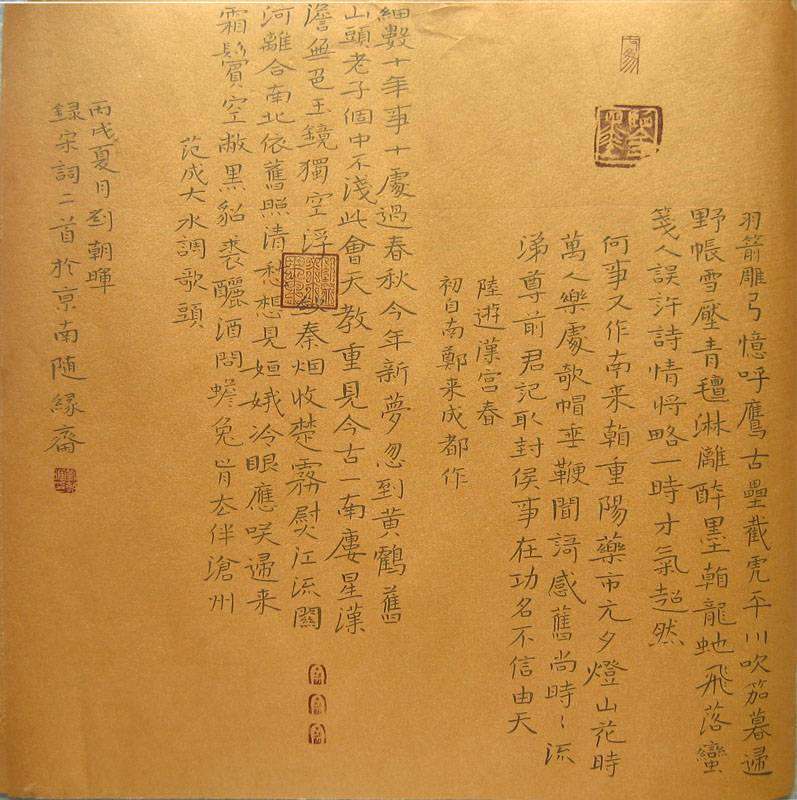 羽箭雕弓憶呼鷹古壘截虎平川吹笳暮歸
野帳雪壓青氊淋離醉墨看龍虵飛落蠻
箋人誤許詩情將略一時才氣超然
何事又作南来看重陽藥市元夕燈山花時
萬人樂處欹帽垂鞭聞謌感舊尚時〻流
涕尊前君記取封侯事在功名不信由天
陸遊漢宮春
初自南鄭来成都作
細數十年事十處過春秋今年新夢忽到黃鶴舊
山頭老子個中不淺此會天教重見今古一南廔星漢
澹無色玉鏡獨空浮秦烟收楚霧熨江流關
河離合南北依舊照清愁想見姮娥冷眼應咲歸来
霜鬢空敝黑貂裘釃酒問蟾兔肯去伴滄州
范成大水調歌頭
丙戌夏月劉朝暉
録宋詞二首於京南随緣齋